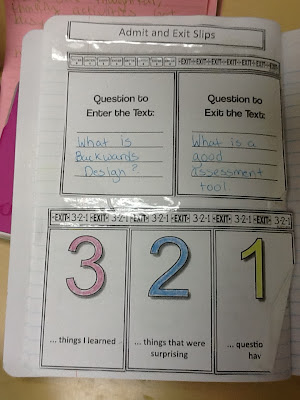 Admit and Exit Slips
·EXIT·EXIT·EXIT·EXIT·EXIT·EXIT·
Question to
Enter the Text:
What is
Backwards
Design?
Question to
Exit the Text:
What is a
good
assessment
tool
EXIT· 3-2-1 ·EXIT· 3-2-1 ·EXIT· 3-2-1 ·EXIT· 3-2-1 ·EXIT· 3-2-1
3
... things I learned
2
... things that were
surprising
1
... questio
hav